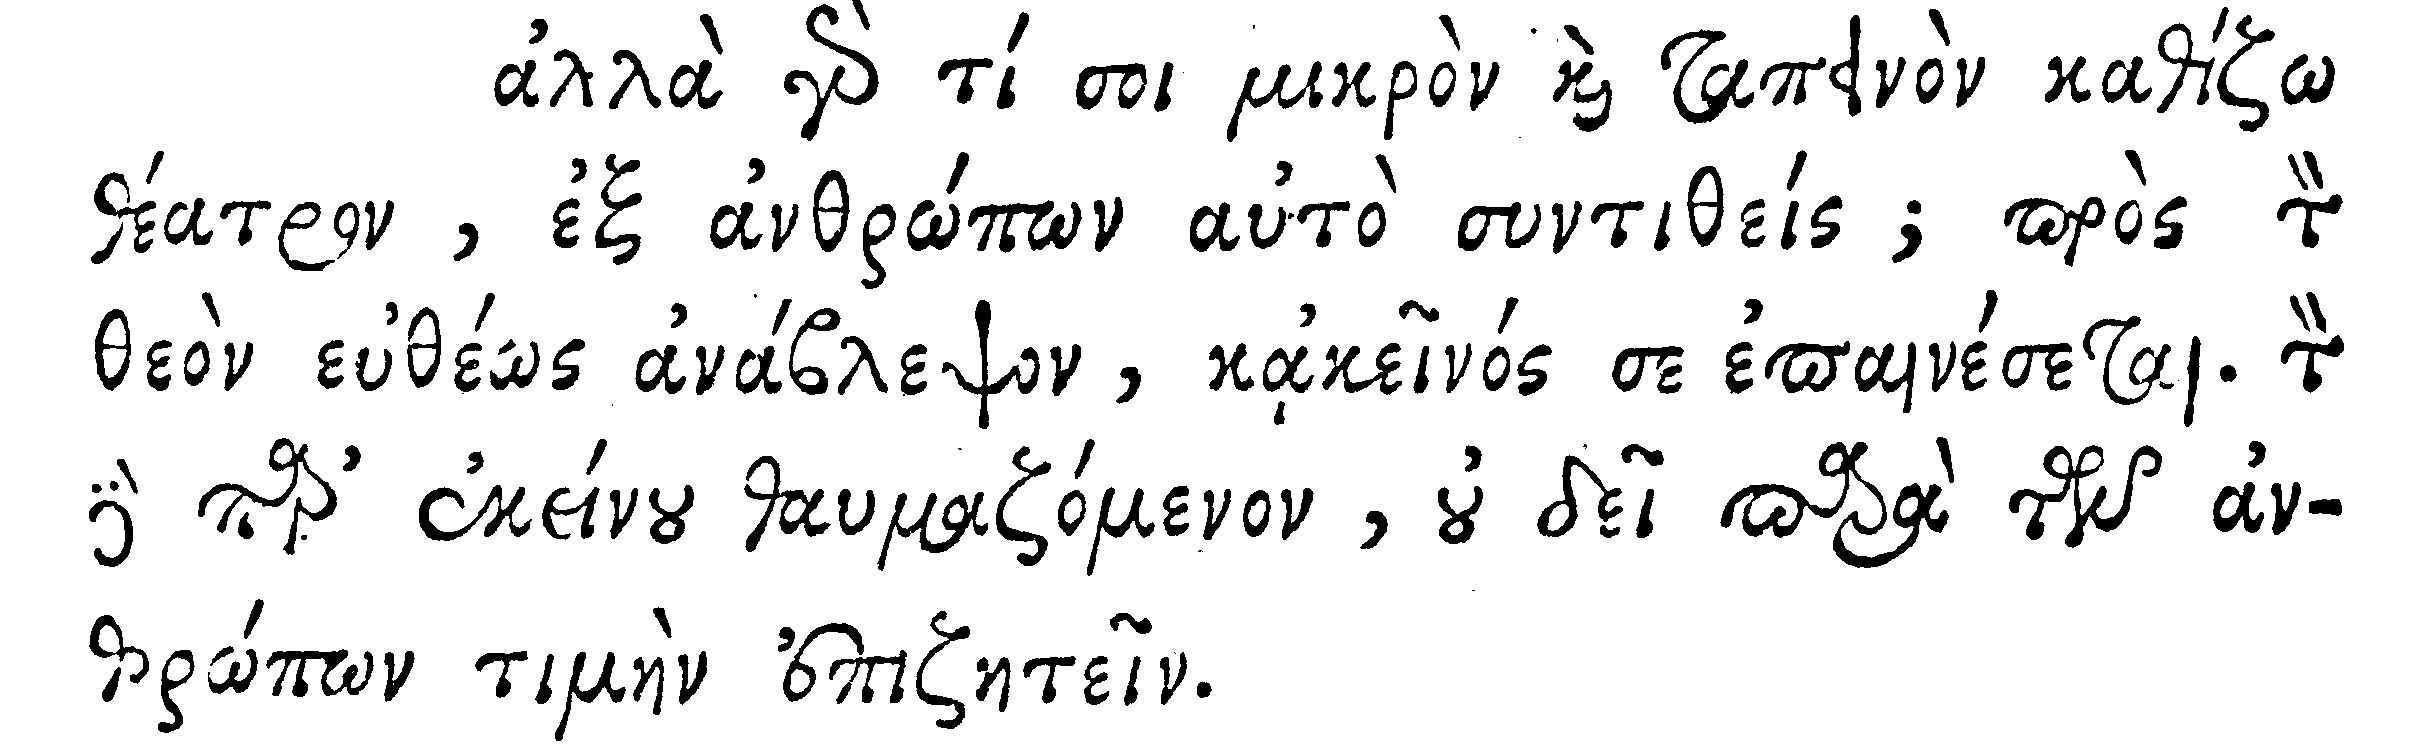 ἀλλὰ γὰρ τί σοι μικρὸν καὶ ταπεινὸν καθίζω
θέατρον, ἐξ ἀνθρώπων αὐτὸ συντιθείς; πρὸς τὸν
θεὸν εὐθέως ἀνάβλεψον, κᾀκεῖνός σε ἐπαινέσεται. τὸν
γὰρ παρ' ἐκείνου θαυμαζόμενον, οὐ δεῖ παρὰ τῶν ἀν-
θρώπων τιμὴν ἐπιζητεῖν.